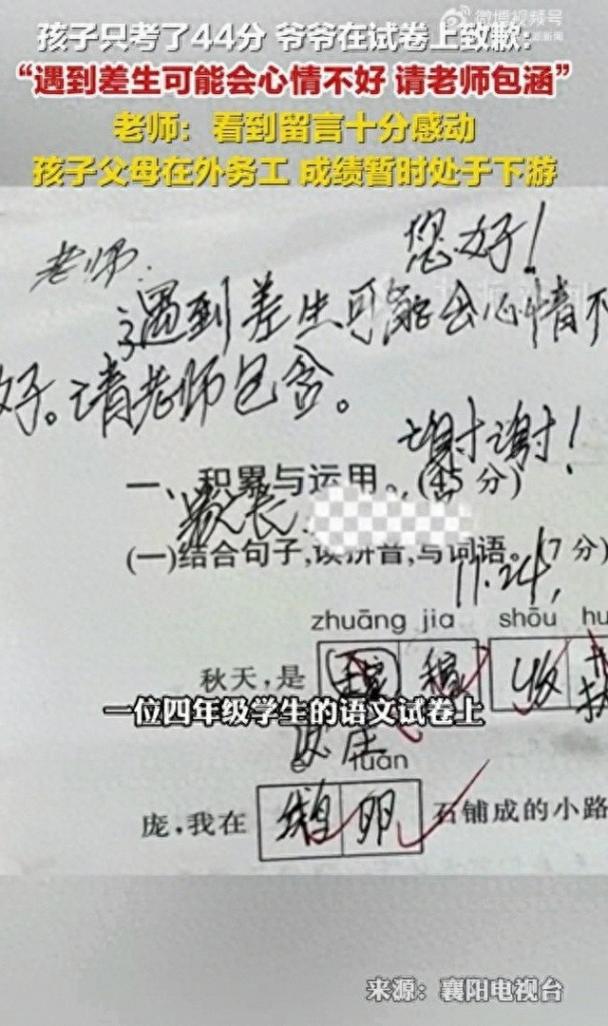 微博视频号
孩子只考了44分 爷爷在试卷上致歉:
“遇到差生可能会心情不好 请老师包涵”
老师：看到留言十分感动
孩子父母在外务工 成绩暂时处于下游
老师:
您好!
遇到差生可能会心情不
好。请老师包含。
谢谢!
一、积累与运用。(45分)
家长
(一)结合句子,读拼音,写词语。(7分)
11.24,
zhuāng jia shōu hu
秋天,是 稼 收
一位四年级学生的语文试卷上
é luǎn
庞,我在 鹅 卵 石铺成的小路
来源：襄阳电视台